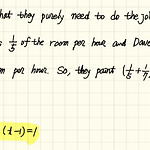 hat they purely need to do the jo
s 1/5 of the room per hour and Dave
m per hour. So, they paint (1/5+1/7,
(t-1)=1